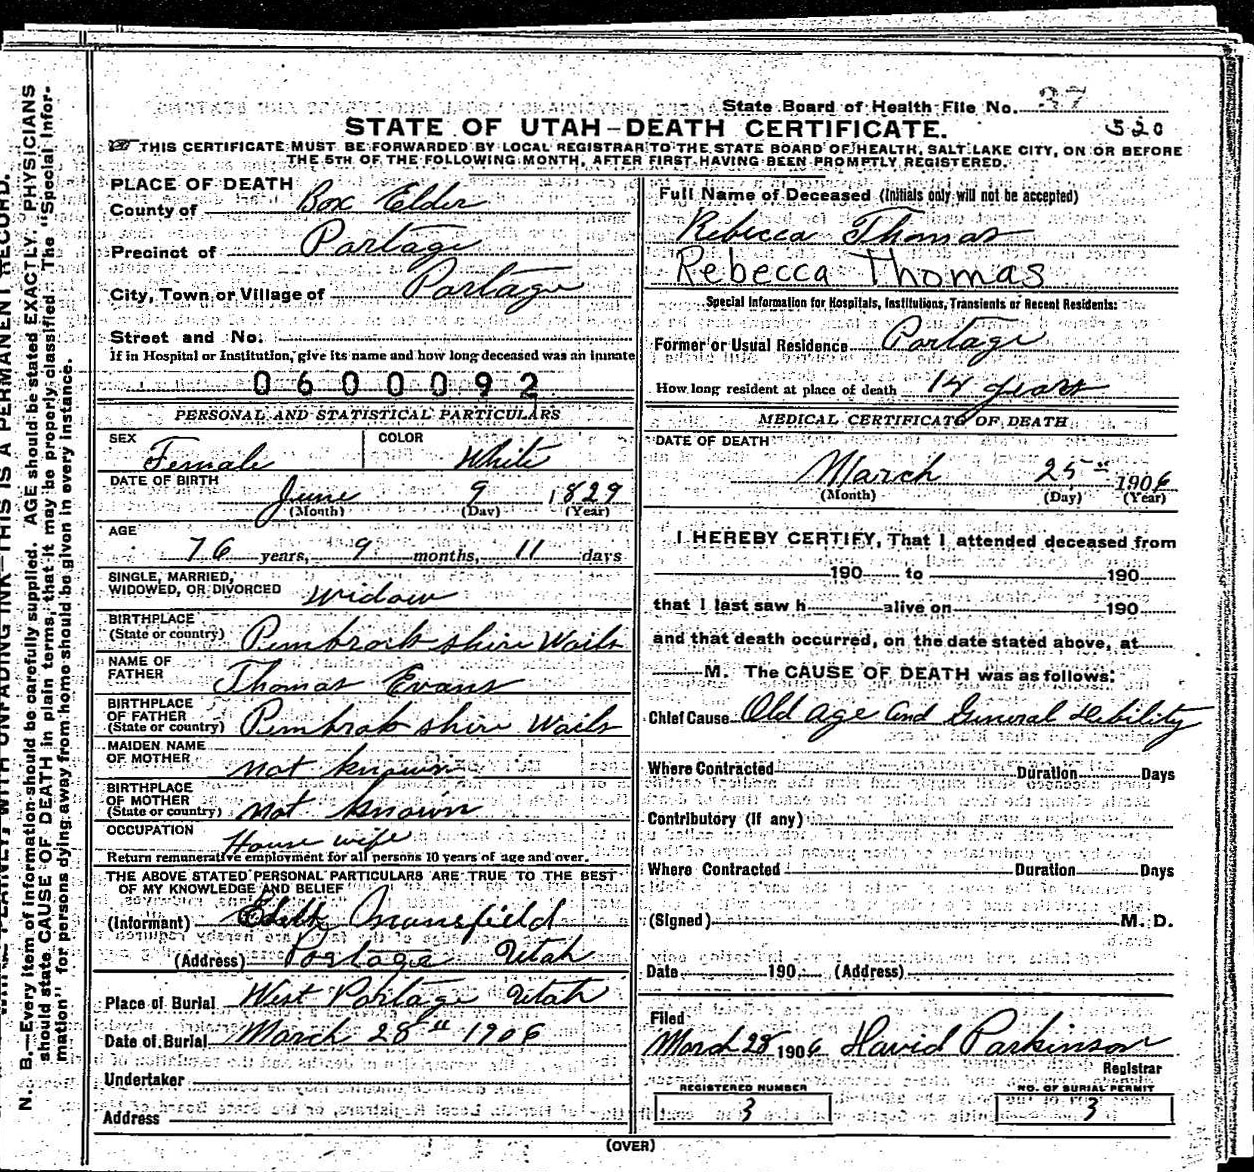 State Board of Health File No. 37
STATE OF UTAH—DEATH CERTIFICATE. 520
THIS CERTIFICATE MUST BE FORWARDED BY LOCAL REGISTRAR TO THE STATE BOARD OF HEALTH, SALT LAKE CITY, ON OR BEFORE
THE 5TH OF THE FOLLOWING MONTH, AFTER FIRST HAVING BEEN PROMPTLY REGISTERED.
PLACE OF DEATH
County of Box Elder
Precinct of Portage
City, Town or Village of Portage
Street and No.
If in Hospital or Institution, give its name and how long deceased was an inmate
0600092
PERSONAL AND STATISTICAL PARTICULARS
SEX Female COLOR White
DATE OF BIRTH June 9 1829
(Month) (Day) (Year)
AGE
76 years, 9 months, 11 days
SINGLE, MARRIED,
WIDOWED, OR DIVORCED widow
BIRTHPLACE
(State or country) Pembrock shire Wails
NAME OF
FATHER Thomas Evans
BIRTHPLACE
OF FATHER
(State or country) Pembrok shire Wails
MAIDEN NAME
OF MOTHER not known
BIRTHPLACE
OF MOTHER
(State or country) not known
OCCUPATION House wife
Return remunerative employment for all persons 10 years of age and over.
THE ABOVE STATED PERSONAL PARTICULARS ARE TRUE TO THE BEST
OF MY KNOWLEDGE AND BELIEF
(Informant) Edith Mansfield
(Address) Portage Utah
Place of Burial West Portage Utah
Date of Burial March 28th 1906
Undertaker
Address
Full Name of Deceased (Initials only will not be accepted)
Rebecca Thomas
Rebecca Thomas
Special Information for Hospitals, Institutions, Transients or Recent Residents:
Former or Usual Residence Portage
How long resident at place of death 14 years
MEDICAL CERTIFICATE OF DEATH
DATE OF DEATH
March 25th 1906
(Month) (Day) (Year)
I HEREBY CERTIFY, That I attended deceased from
190 to 190
that I last saw h alive on 190
and that death occurred, on the date stated above, at
M. The CAUSE OF DEATH was as follows:
Chief Cause Old age and General debility
Where Contracted Duration Days
Contributory (If any)
Where Contracted Duration Days
(Signed) M. D.
Date 190 (Address)
Filed
March 28 1906 David Parkinson
Registrar
REGISTERED NUMBER NO. OF BURIAL PERMIT
3 3
(OVER)
N. B.—Every item of information should be carefully supplied. AGE should be stated EXACTLY. PHYSICIANS
should state CAUSE OF DEATH in plain terms, that it may be properly classified. The "Special Infor-
mation" for persons dying away from home should be given in every instance.